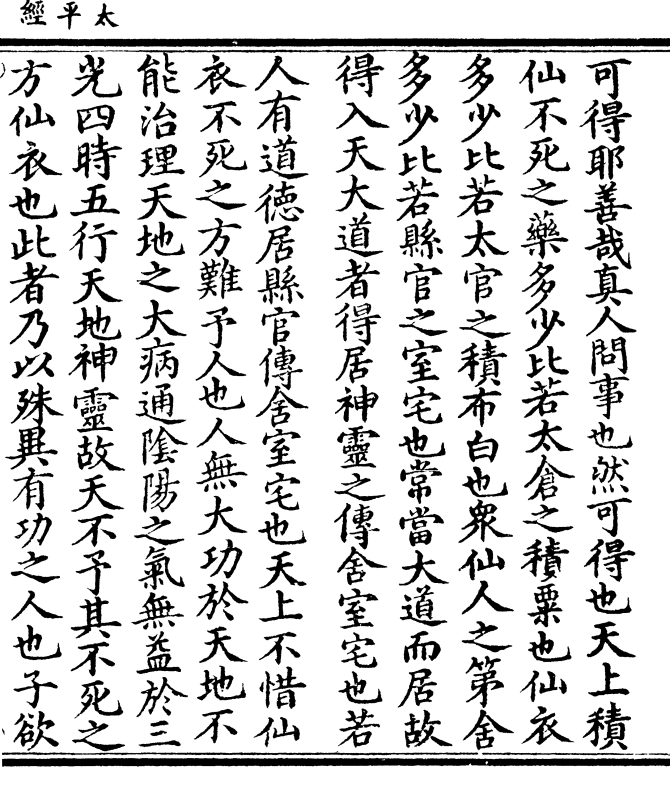 太平經
可得耶善哉真人問事也然可得也天上積
仙不死之藥多少比若太倉之積粟也仙衣
多少比若太官之積布白也眾仙人之第舍
多少比若縣官之室宅也常當大道而居故
得入天大道者得居神靈之傳舍室宅也若
人有道德居縣官傳舍室宅也天上不惜仙
衣不死之方難予人也人無大功於天地不
能治理天地之大病通陰陽之氣無益於三
光四時五行天地神靈故天不予其不死之
方仙衣也此者乃以殊異有功之人也子欲